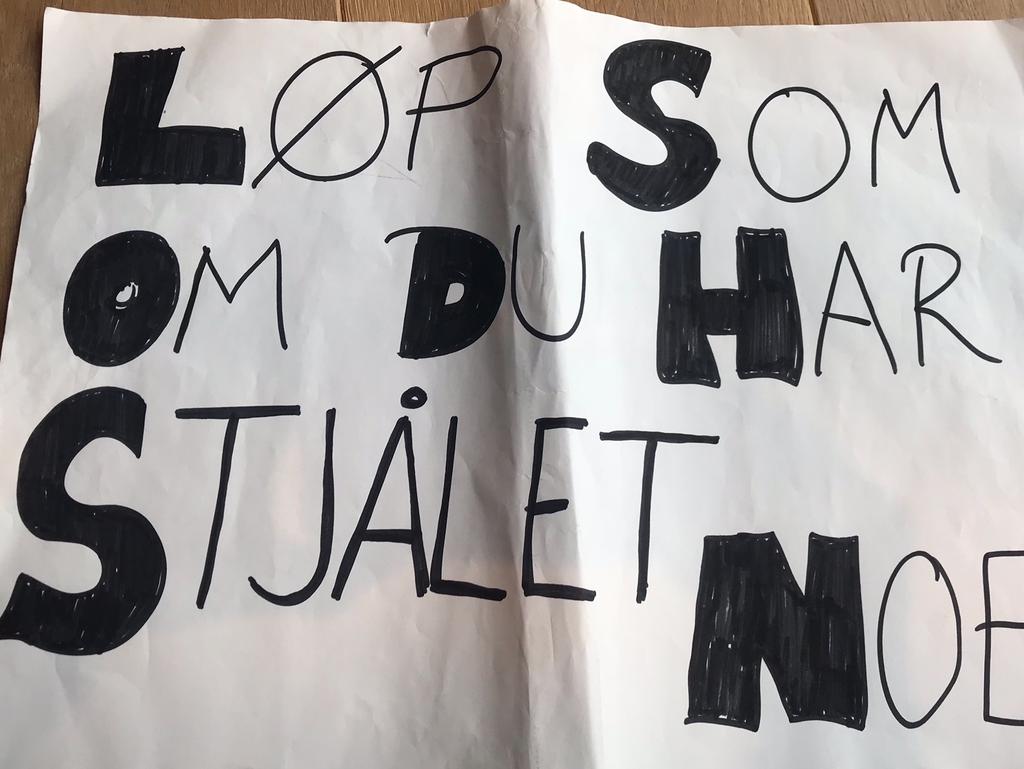 LØP SOM
OM DU HAR
STJÅLET
NOE